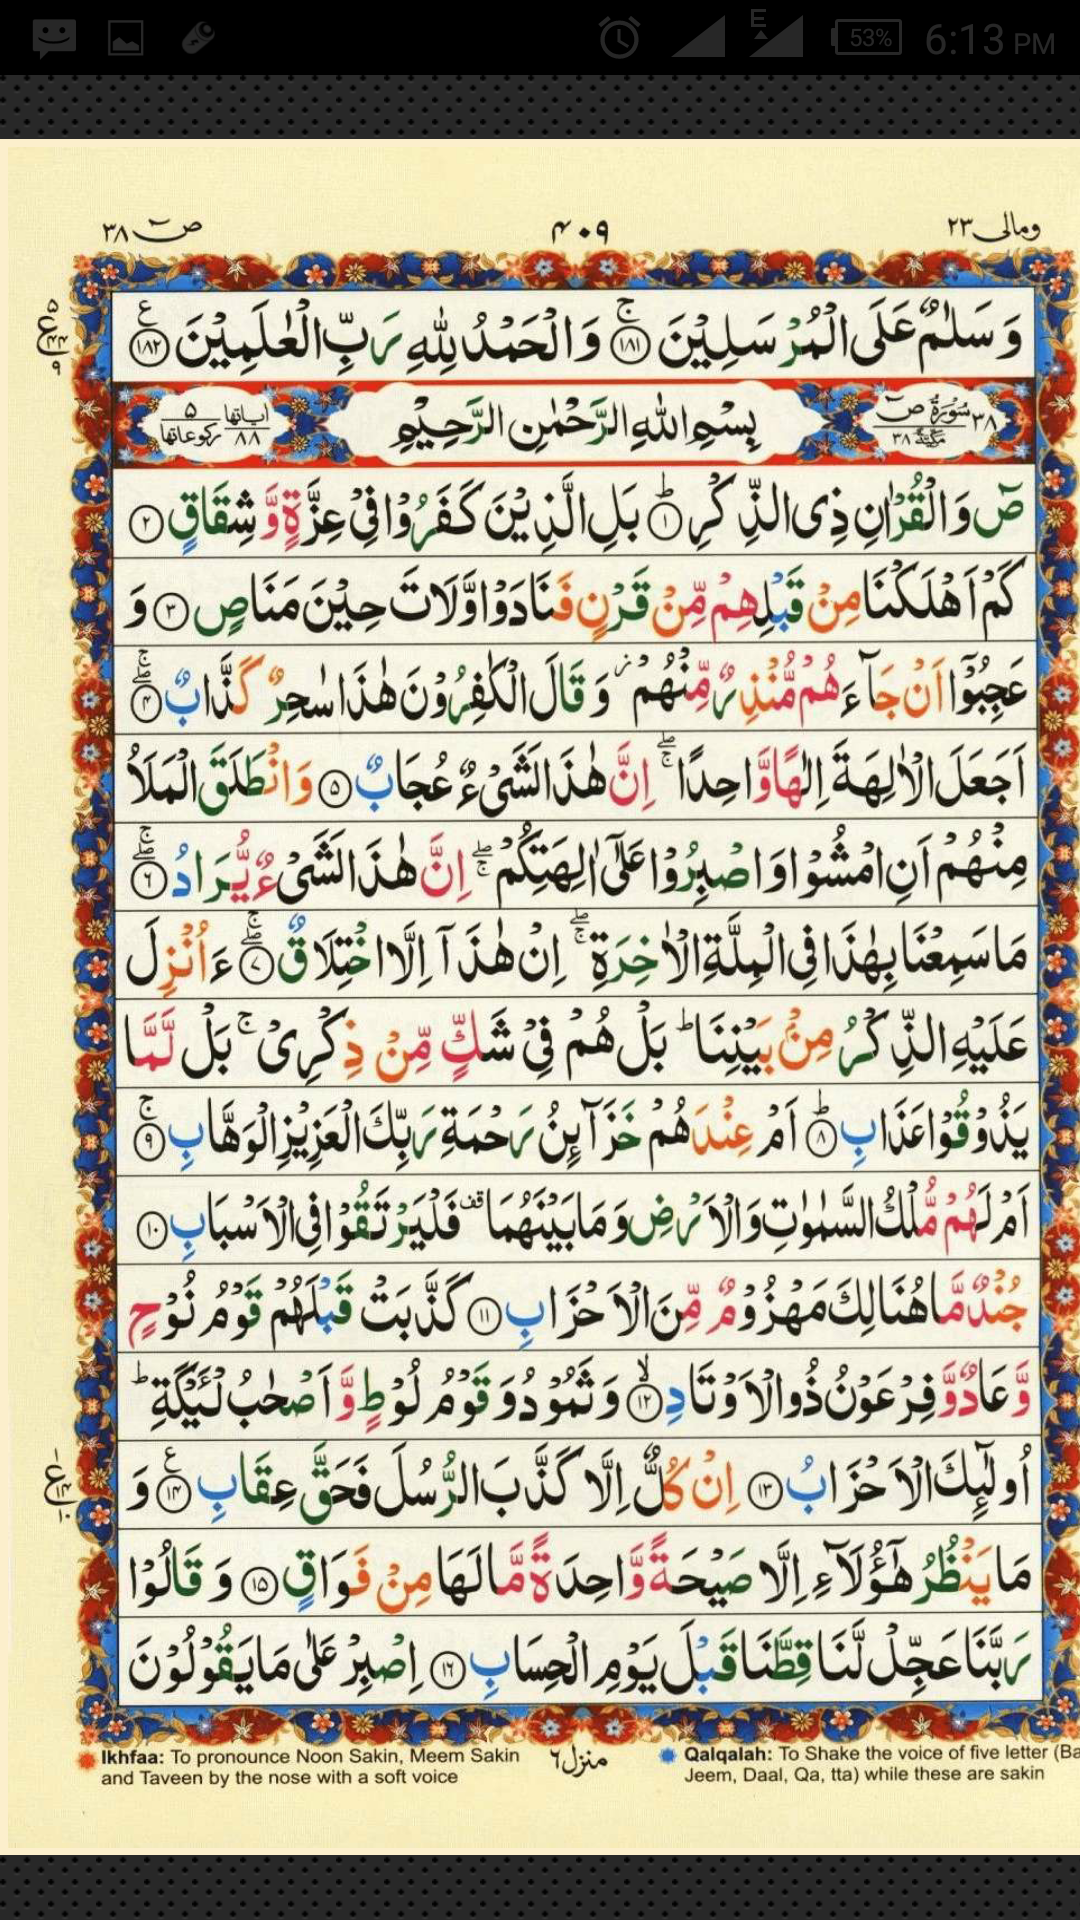 53% 6:13 PM
E
ومالی ٢٣
٤٠٩
صٓ ٣٨
وَسَلٰمٌ عَلَی الْمُرْسَلِیْنَ ۝١٨١ۚ وَالْحَمْدُ لِلّٰهِ رَبِّ الْعٰلَمِیْنَ ۝١٨٢ ع
٣٨ سُوْرَةُ صٓ مَكِّيَّةٌ ٣٨
بِسْمِ اللّٰهِ الرَّحْمٰنِ الرَّحِیْمِ
اٰیاتها ٨٨ رکوعاتها ٥
صٓ وَالْقُرْاٰنِ ذِی الذِّكْرِ ۝١ؕ بَلِ الَّذِیْنَ كَفَرُوْا فِیْ عِزَّةٍ وَّشِقَاقٍ ۝٢
كَمْ اَهْلَكْنَا مِنْ قَبْلِهِمْ مِّنْ قَرْنٍ فَنَادَوْا وَّلَاتَ حِیْنَ مَنَاصٍ ۝٣ وَ
عَجِبُوْۤا اَنْ جَآءَهُمْ مُّنْذِرٌ مِّنْهُمْ ؗ وَقَالَ الْكٰفِرُوْنَ هٰذَا سٰحِرٌ كَذَّابٌ ۝٤ۖۚ
اَجَعَلَ الْاٰلِهَةَ اِلٰهًا وَّاحِدًا ۖۚ اِنَّ هٰذَا لَشَیْءٌ عُجَابٌ ۝٥ وَانْطَلَقَ الْمَلَاُ
مِنْهُمْ اَنِ امْشُوْا وَاصْبِرُوْا عَلٰۤی اٰلِهَتِكُمْ ۖۚ اِنَّ هٰذَا لَشَیْءٌ یُّرَادُ ۝٦ۖۚ
مَا سَمِعْنَا بِهٰذَا فِی الْمِلَّةِ الْاٰخِرَةِ ۖۚ اِنْ هٰذَاۤ اِلَّا اخْتِلَاقٌ ۝٧ۖۚ ءَاُنْزِلَ
عَلَیْهِ الذِّكْرُ مِنْۢ بَیْنِنَا ؕ بَلْ هُمْ فِیْ شَكٍّ مِّنْ ذِكْرِیْ ۚ بَلْ لَّمَّا
یَذُوْقُوْا عَذَابِ ۝٨ؕ اَمْ عِنْدَهُمْ خَزَآئِنُ رَحْمَةِ رَبِّكَ الْعَزِیْزِ الْوَهَّابِ ۝٩ۚ
اَمْ لَهُمْ مُّلْكُ السَّمٰوٰتِ وَالْاَرْضِ وَمَا بَیْنَهُمَا قف فَلْیَرْتَقُوْا فِی الْاَسْبَابِ ۝١٠
جُنْدٌ مَّا هُنَالِكَ مَهْزُوْمٌ مِّنَ الْاَحْزَابِ ۝١١ كَذَّبَتْ قَبْلَهُمْ قَوْمُ نُوْحٍ
وَّعَادٌ وَّفِرْعَوْنُ ذُو الْاَوْتَادِ ۝١٢ۙ وَثَمُوْدُ وَقَوْمُ لُوْطٍ وَّاَصْحٰبُ لْـَٔیْكَةِ ؕ
اُولٰٓئِكَ الْاَحْزَابُ ۝١٣ اِنْ كُلٌّ اِلَّا كَذَّبَ الرُّسُلَ فَحَقَّ عِقَابِ ۝١٤ ع وَ
مَا یَنْظُرُ هٰۤؤُلَآءِ اِلَّا صَیْحَةً وَّاحِدَةً مَّا لَهَا مِنْ فَوَاقٍ ۝١٥ وَقَالُوْا
رَبَّنَا عَجِّلْ لَّنَا قِطَّنَا قَبْلَ یَوْمِ الْحِسَابِ ۝١٦ اِصْبِرْ عَلٰی مَا یَقُوْلُوْنَ
Ikhfaa: To pronounce Noon Sakin, Meem Sakin
and Taveen by the nose with a soft voice
منزل ٦
Qalqalah: To Shake the voice of five letter (Ba
Jeem, Daal, Qa, tta) while these are sakin